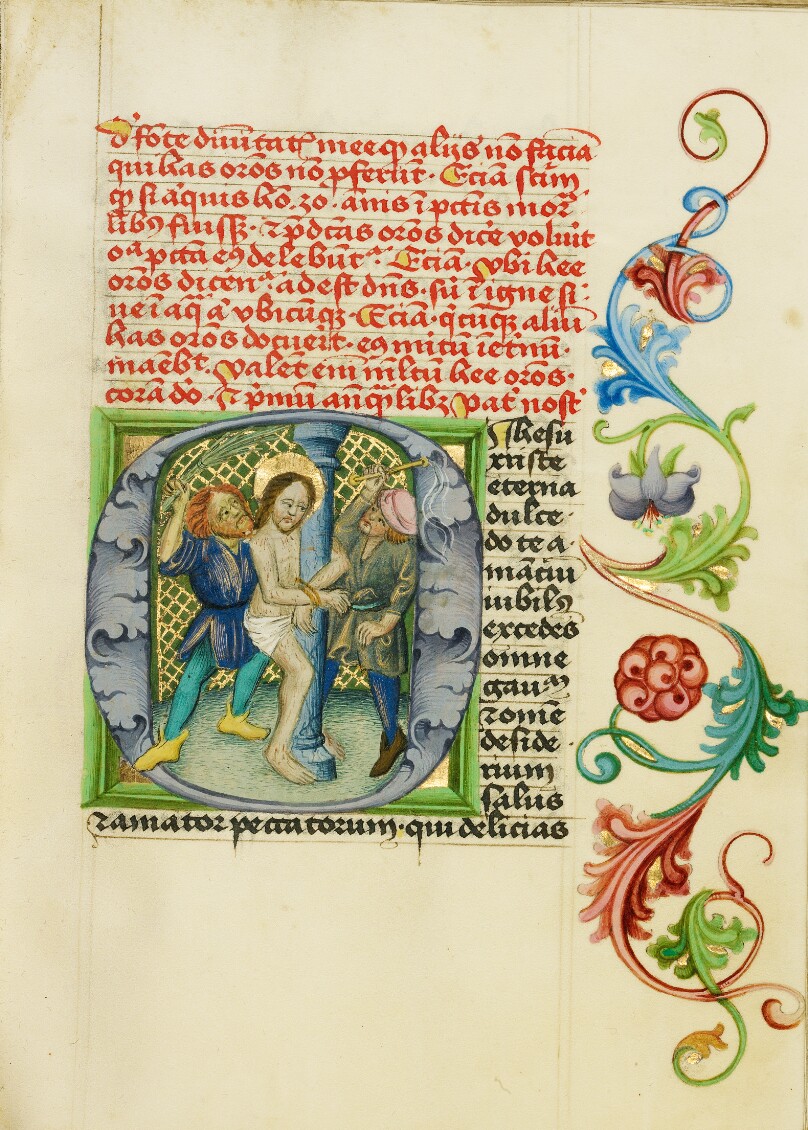 d' fōte diuītat᷑ mee qꝫ alijs nō faciā
qui has orōs nō pferūt · Eciā sciā
qꝫ si aͣquis hō · 30 · anis ī pctīs mor̄
libꝰ fuiss · ⁊ pdctas orōs dice᷑ voluit
oͣ pctā eꝰ delebūt᷑ · Eciā · vbi hee
orōs dicent᷑ · adest dn̄s · siū ī igne si
ue ī aq̄ aͣ vbicūqꝫ · Eciā · qͥcūqꝫ aliū
has orōs docuerīt · eꝰ mitū īet̄nū ·
māebt · valet em̄ mltū hee orōs ·
corā dō · Et pmū anqͣlibꝫ pat᷑ nost᷑
Ihesu
xpiste
eterna
dulce
do te a
mātiū
iubilꝰ
excedēs
omne
gauᵐ
⁊ omē
deside
rium
salus
⁊ amator peccatorum · qui delicias